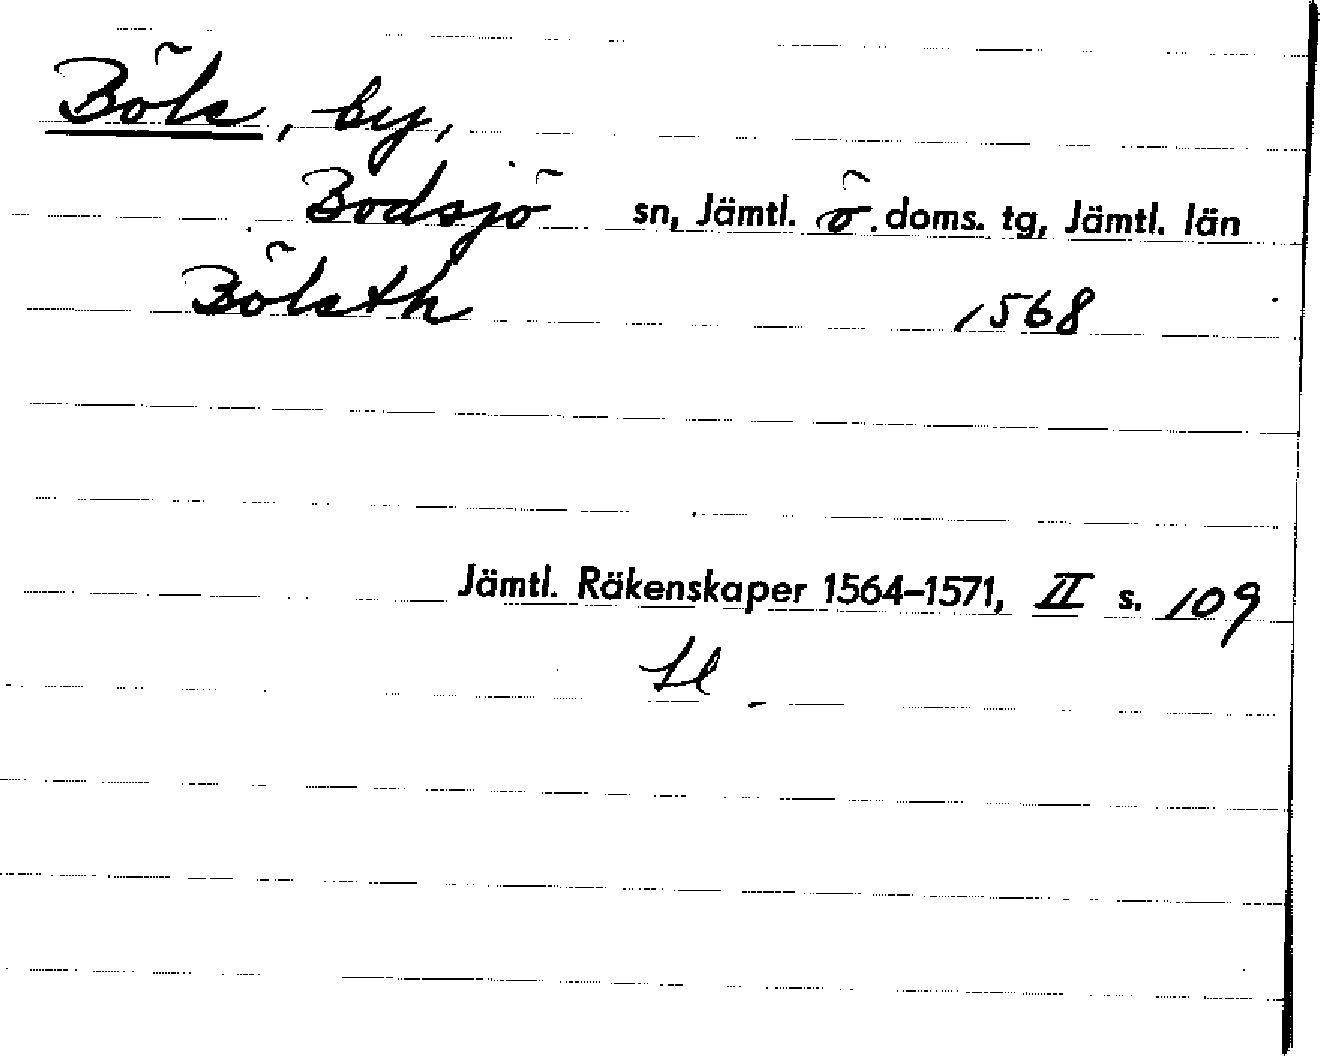 Böle, by,
Bodsjö sn, Jämtl. ö. doms. tg, Jämtl. län
Bölsth 1568
Jämtl. Räkenskaper 1564–1571, II s. 109